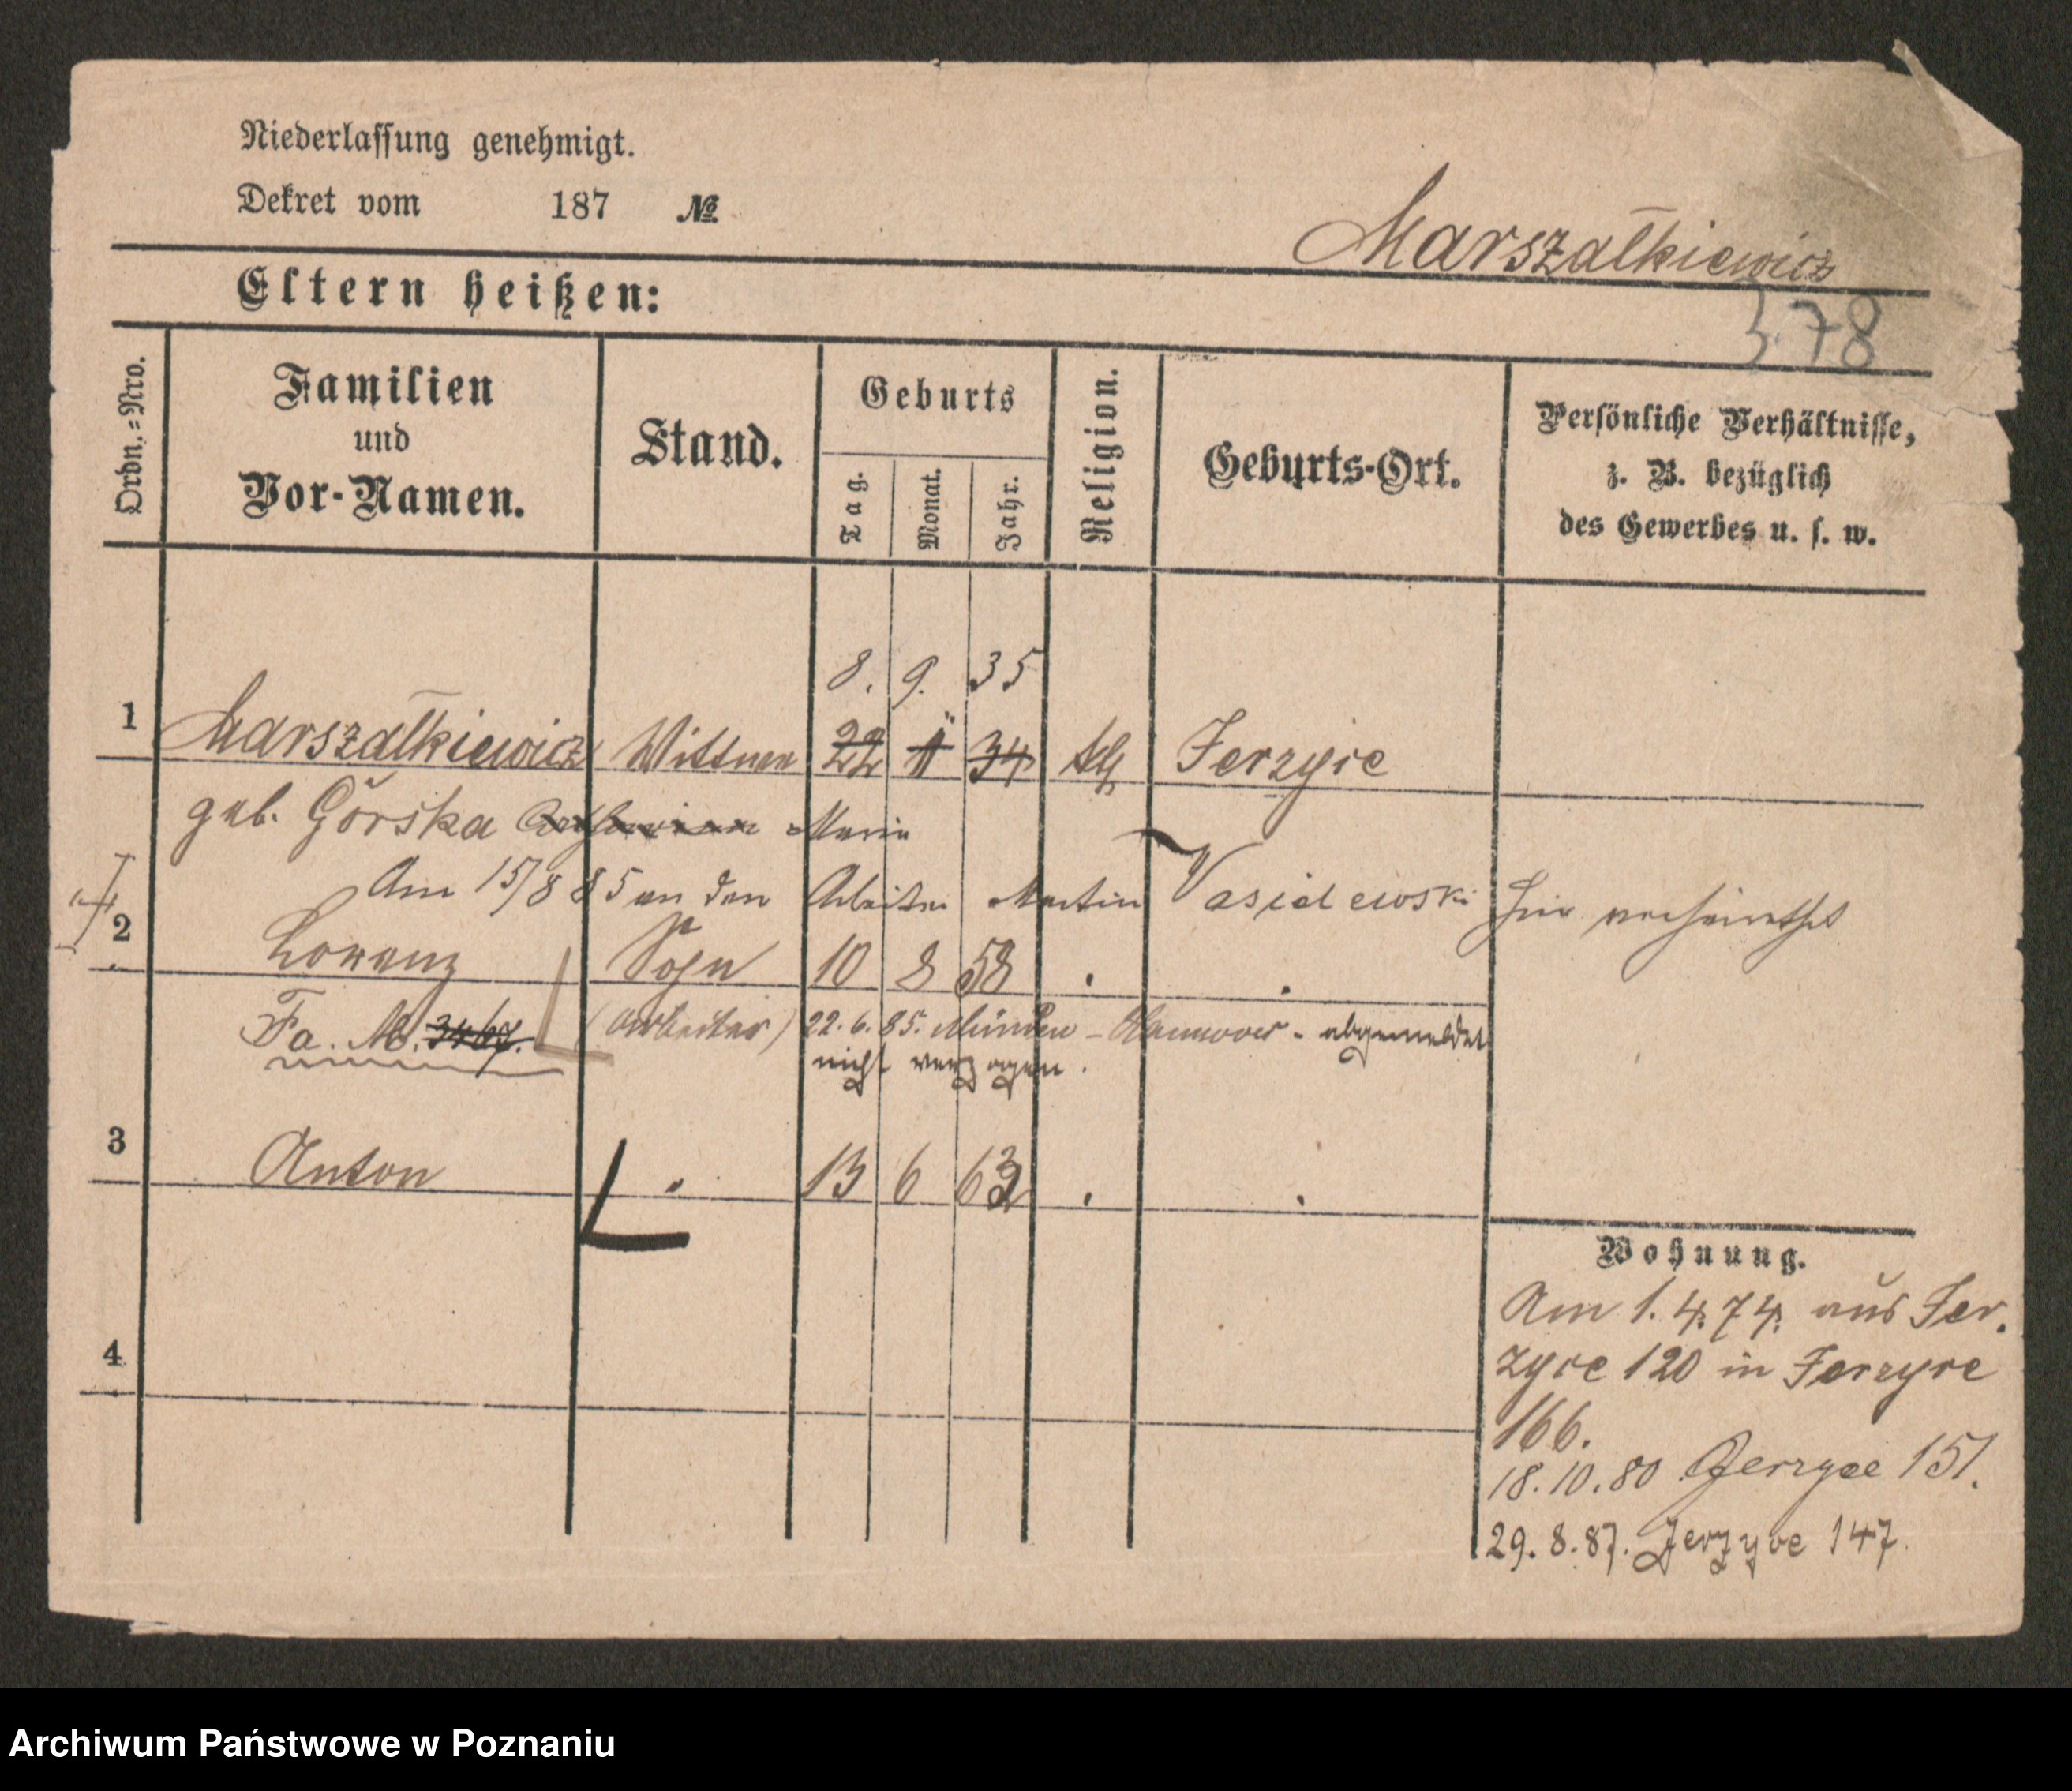 Niederlassung genehmigt.
Dekret vom 187 №
Marszałkiewicz
Eltern heißen:
378
Ordn.=Nro.
Familien
und
Vor-Namen.
Stand.
Geburts
Tag.
Monat.
Jahr.
Religion.
Geburts-Ort.
Persönliche Verhältnisse,
z. B. bezüglich
des Gewerbes u. s. w.
8. 9. 35
1 Marszałkiewicz Wittwe 22 34 kth Jerzyce
geb. Górska Marie
Am 15/8 85 an den Arbeiter Martin Wasielewski hier verheirathet
2 Lorenz Sohn 10 8 58
Fa. No. 3467. (Arbeiter) 22. 6. 85. Münden - Hannover - abgemeldet
nicht verzogen.
3 Anton " 13 6 63
4
Wohnung.
Am 1. 4. 74. aus Jer.
zyce 120 in Jerzyce
166.
18. 10. 80 Jerzyce 151.
29. 8. 87. Jerzyce 147.
Archiwum Państwowe w Poznaniu